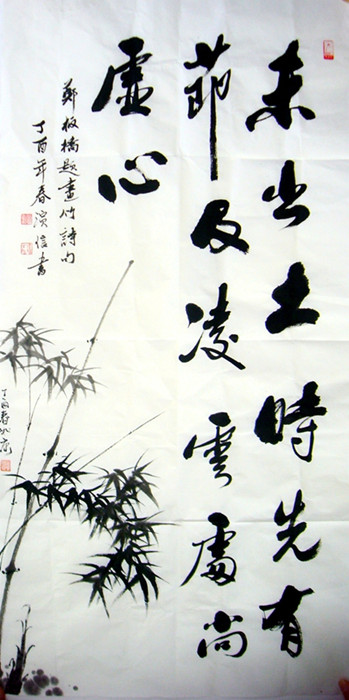 未出土時先有
節及凌雲處尚
虛心
鄭板橋題畫竹詩句
丁酉年春濱信書